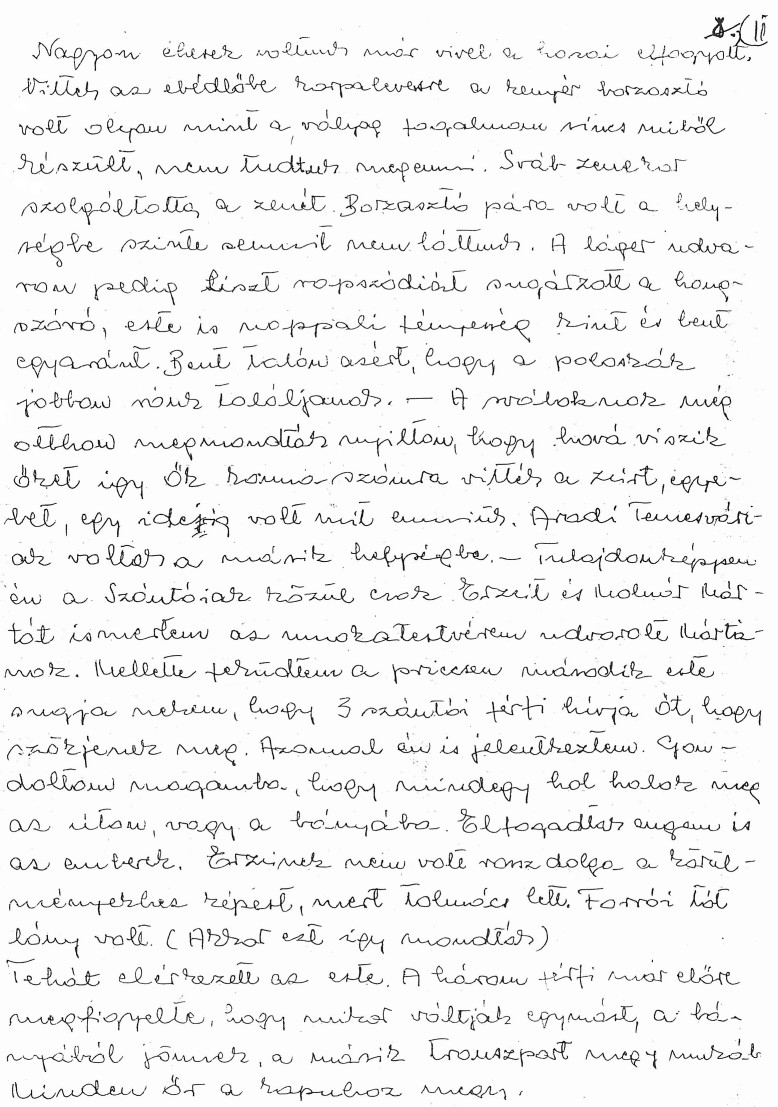 8. II
Nagyon éhesek voltunk már vivel a hozai elfogyott.
Vittek az ebédlőbe korpalevesre a kenyér borzasztó
volt olyan mint a vályog fogalmam sincs miből
készült, nem tudtuk megenni. Sváb zenekar
szolgáltatta a zenét. Borzasztó pára volt a hely-
ségbe szinte semmit nem láttunk. A láger udva-
ron pedig Liszt rapszódiát sugárzott a hang-
szóró, este is nappali fényesség kint és bent
egyaránt. Bent talán azért, hogy a poloskák
jobban ránk találjanak. — A sváboknak még
otthon megmondták nyiltan, hogy hová viszik
őket igy Ők kanna-számra vitték a zsirt, egye-
bet, egy ideig volt mit enniük. Aradi Temesvári-
ak voltak a másik helységbe. — Tulajdonképpen
én a Szántóiak közül csak Erzsit és Molnár Már-
tát ismertem az unokatestvérem udvarolt Mártá-
nak. Mellette feküdtem a priccsen második este
sugja nekem, hogy 3 szántói férfi hívja őt, hogy
szökjenek meg. Azonnal én is jelentkeztem. Gon-
doltam magamba, hogy mindegy hol halok meg
az úton, vagy a bányába. Elfogadtak engem is
az emberek. Erzsinek nem volt rossz dolga a körül-
ményekhez képest, mert tolmács lett. Forrói tót
lány volt. (Akkor ezt igy mondták)
Tehát elérkezett az este. A három férfi már előre
megfigyelte, hogy mikor váltják egymást, a bá-
nyából jönnek, a másik transzport megy munkáb
Minden Őr a kapuhoz megy.